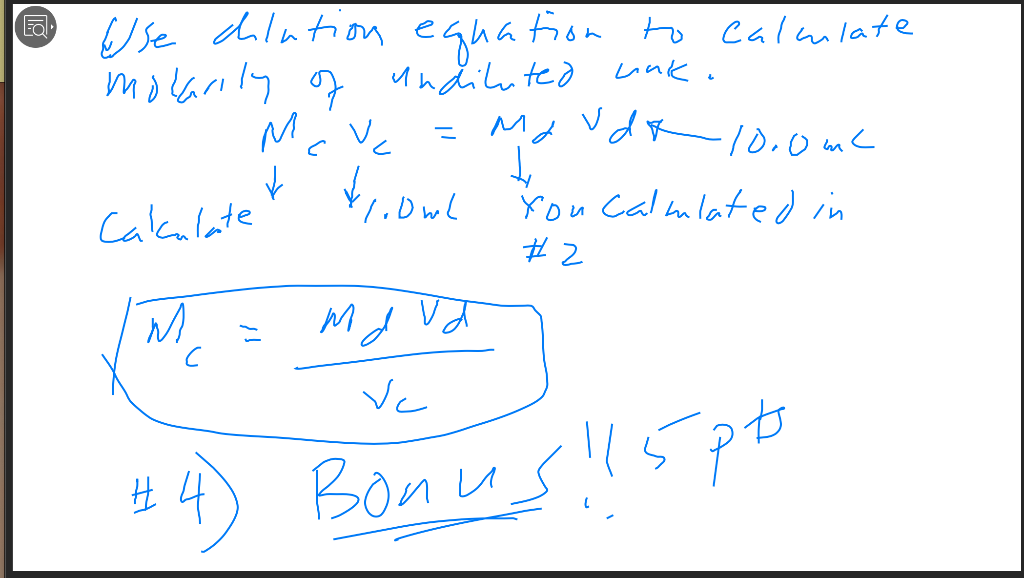 Use dilution equation to calculate
molarity of undiluted unk.
Mc Vc = Md Vd ← 10.0 mL
↓ ↓ ↓
Calculate 1.0 mL You calculated in
#2
Mc = Md Vd
Vc
#4) Bonus!! 5 pts